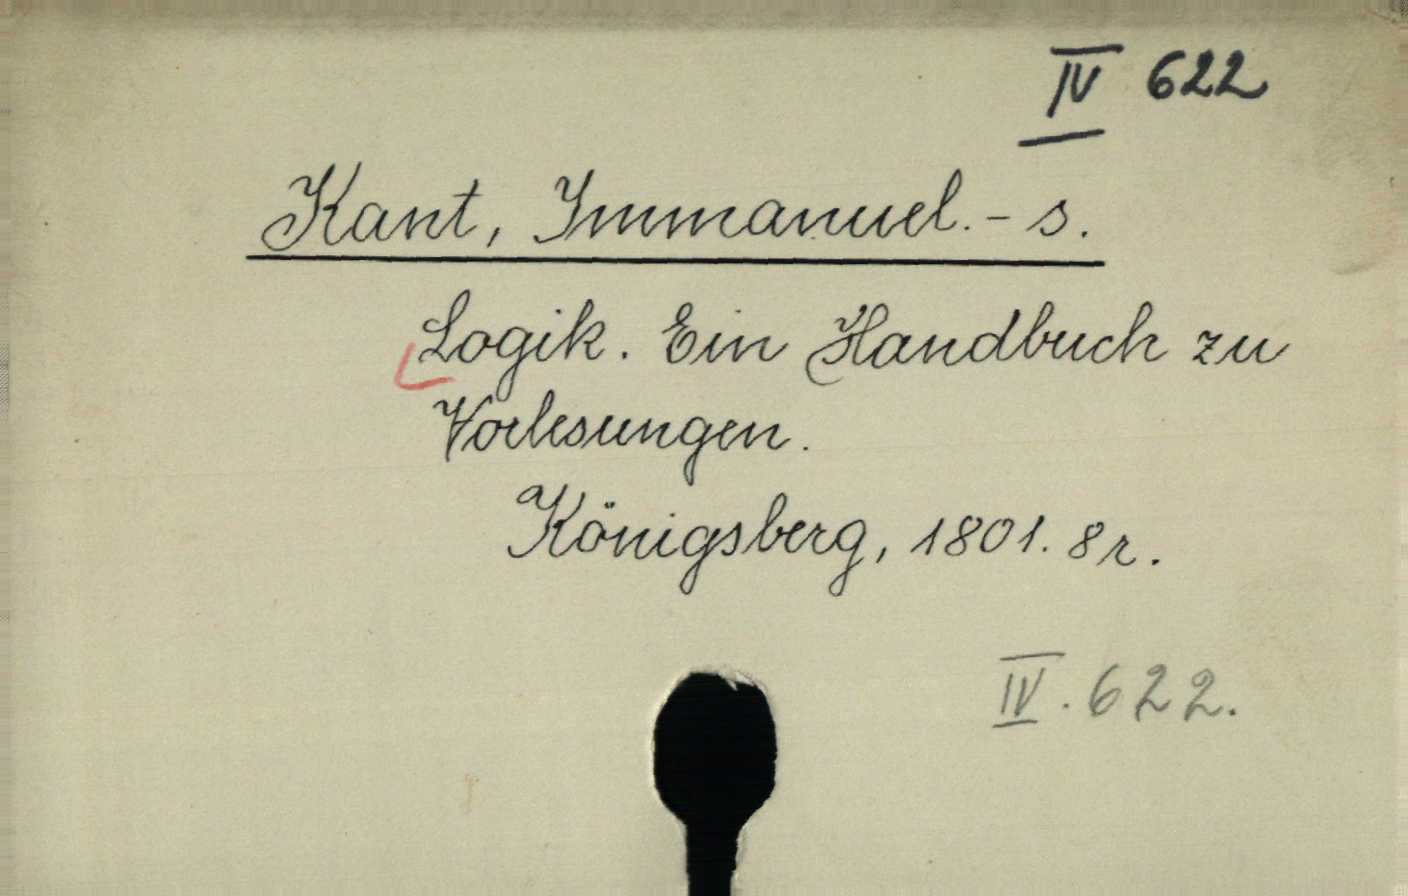 IV 622
Kant, Immanuel. - s.
Logik. Ein Handbuch zu
Vorlesungen.
Königsberg, 1801. 8r.
IV. 622.